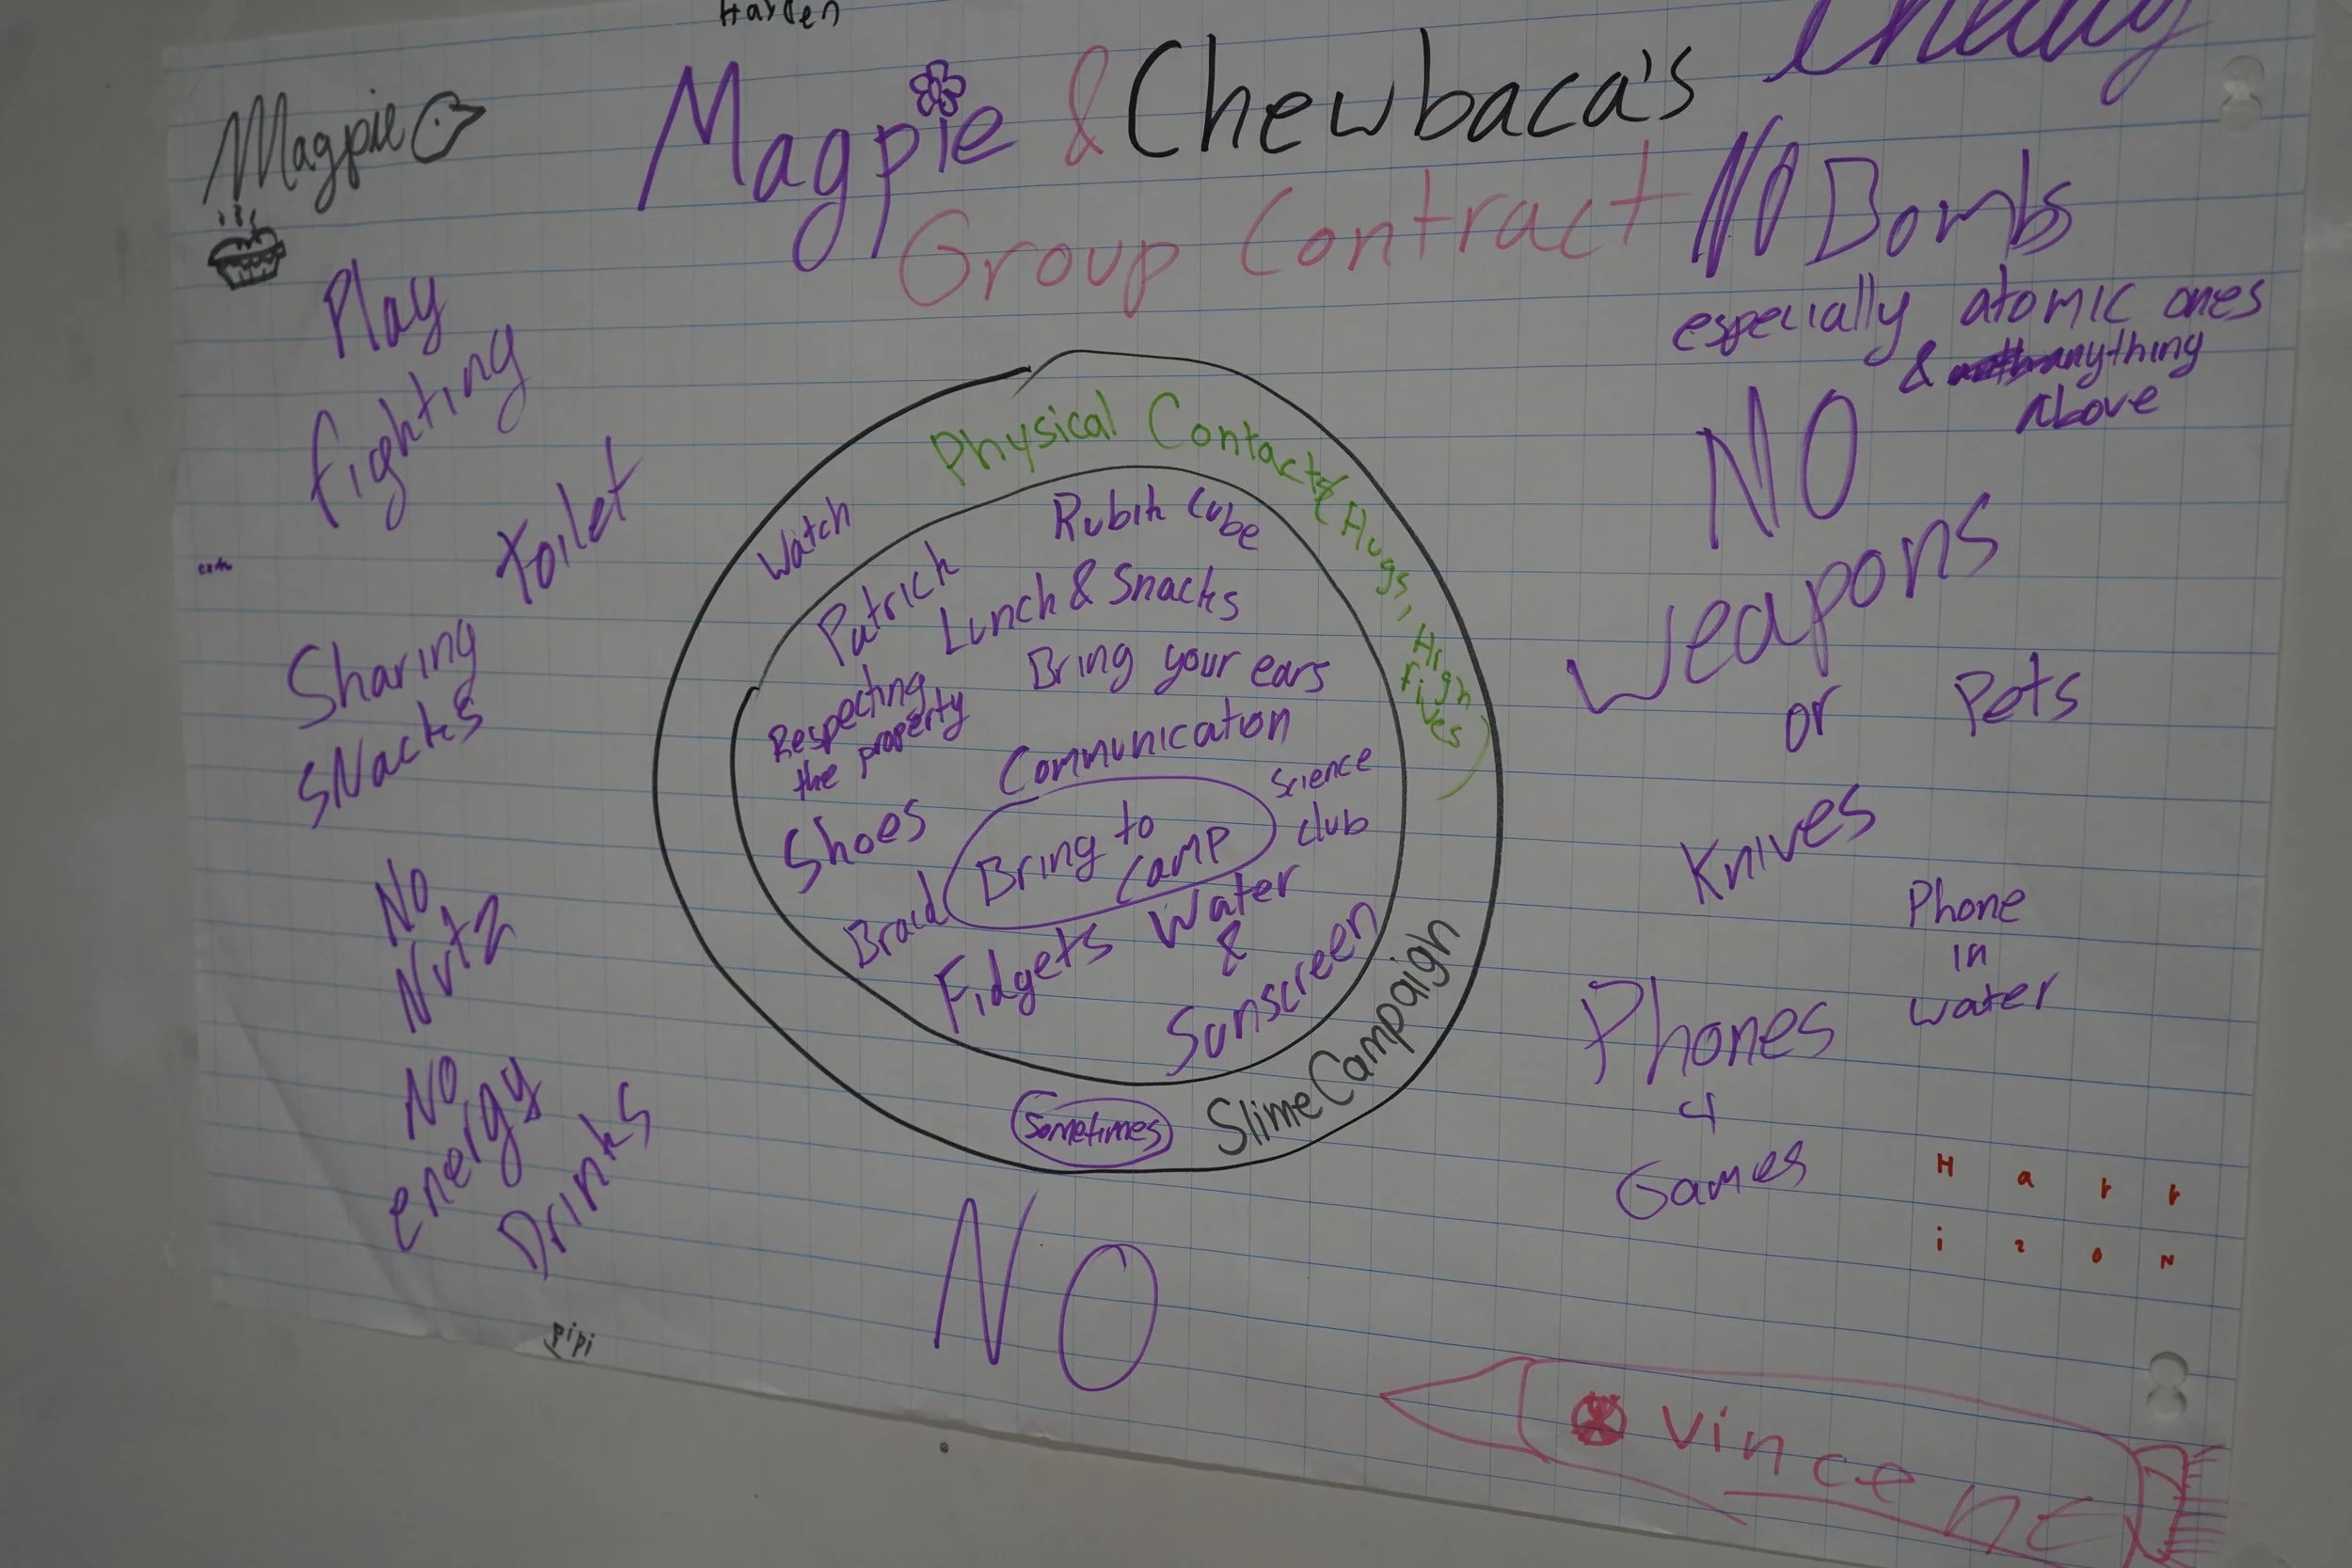 Hayden
Magpie
Magpie & Chewbaca's
Group Contract
NO Bombs
especially atomic ones
& anything
Above
Play
fighting
toilet
Sharing
SNacks
No
Nutz
NO
energy
Drinks
pipi
Physical Contact
(Hugs, High
fives)
Watch
Rubik Cube
Patrick
Lunch & Snacks
Bring your ears
Respecting
the property
Communication
Science
club
Shoes
Bring to
Camp
Braid
Fidgets
Water
&
Sunscreen
Sometimes
Slime Campaign
NO
NO
weapons
or
Pets
Knives
Phone
in
water
Phones
4
Games
Harr
ison
Vincent